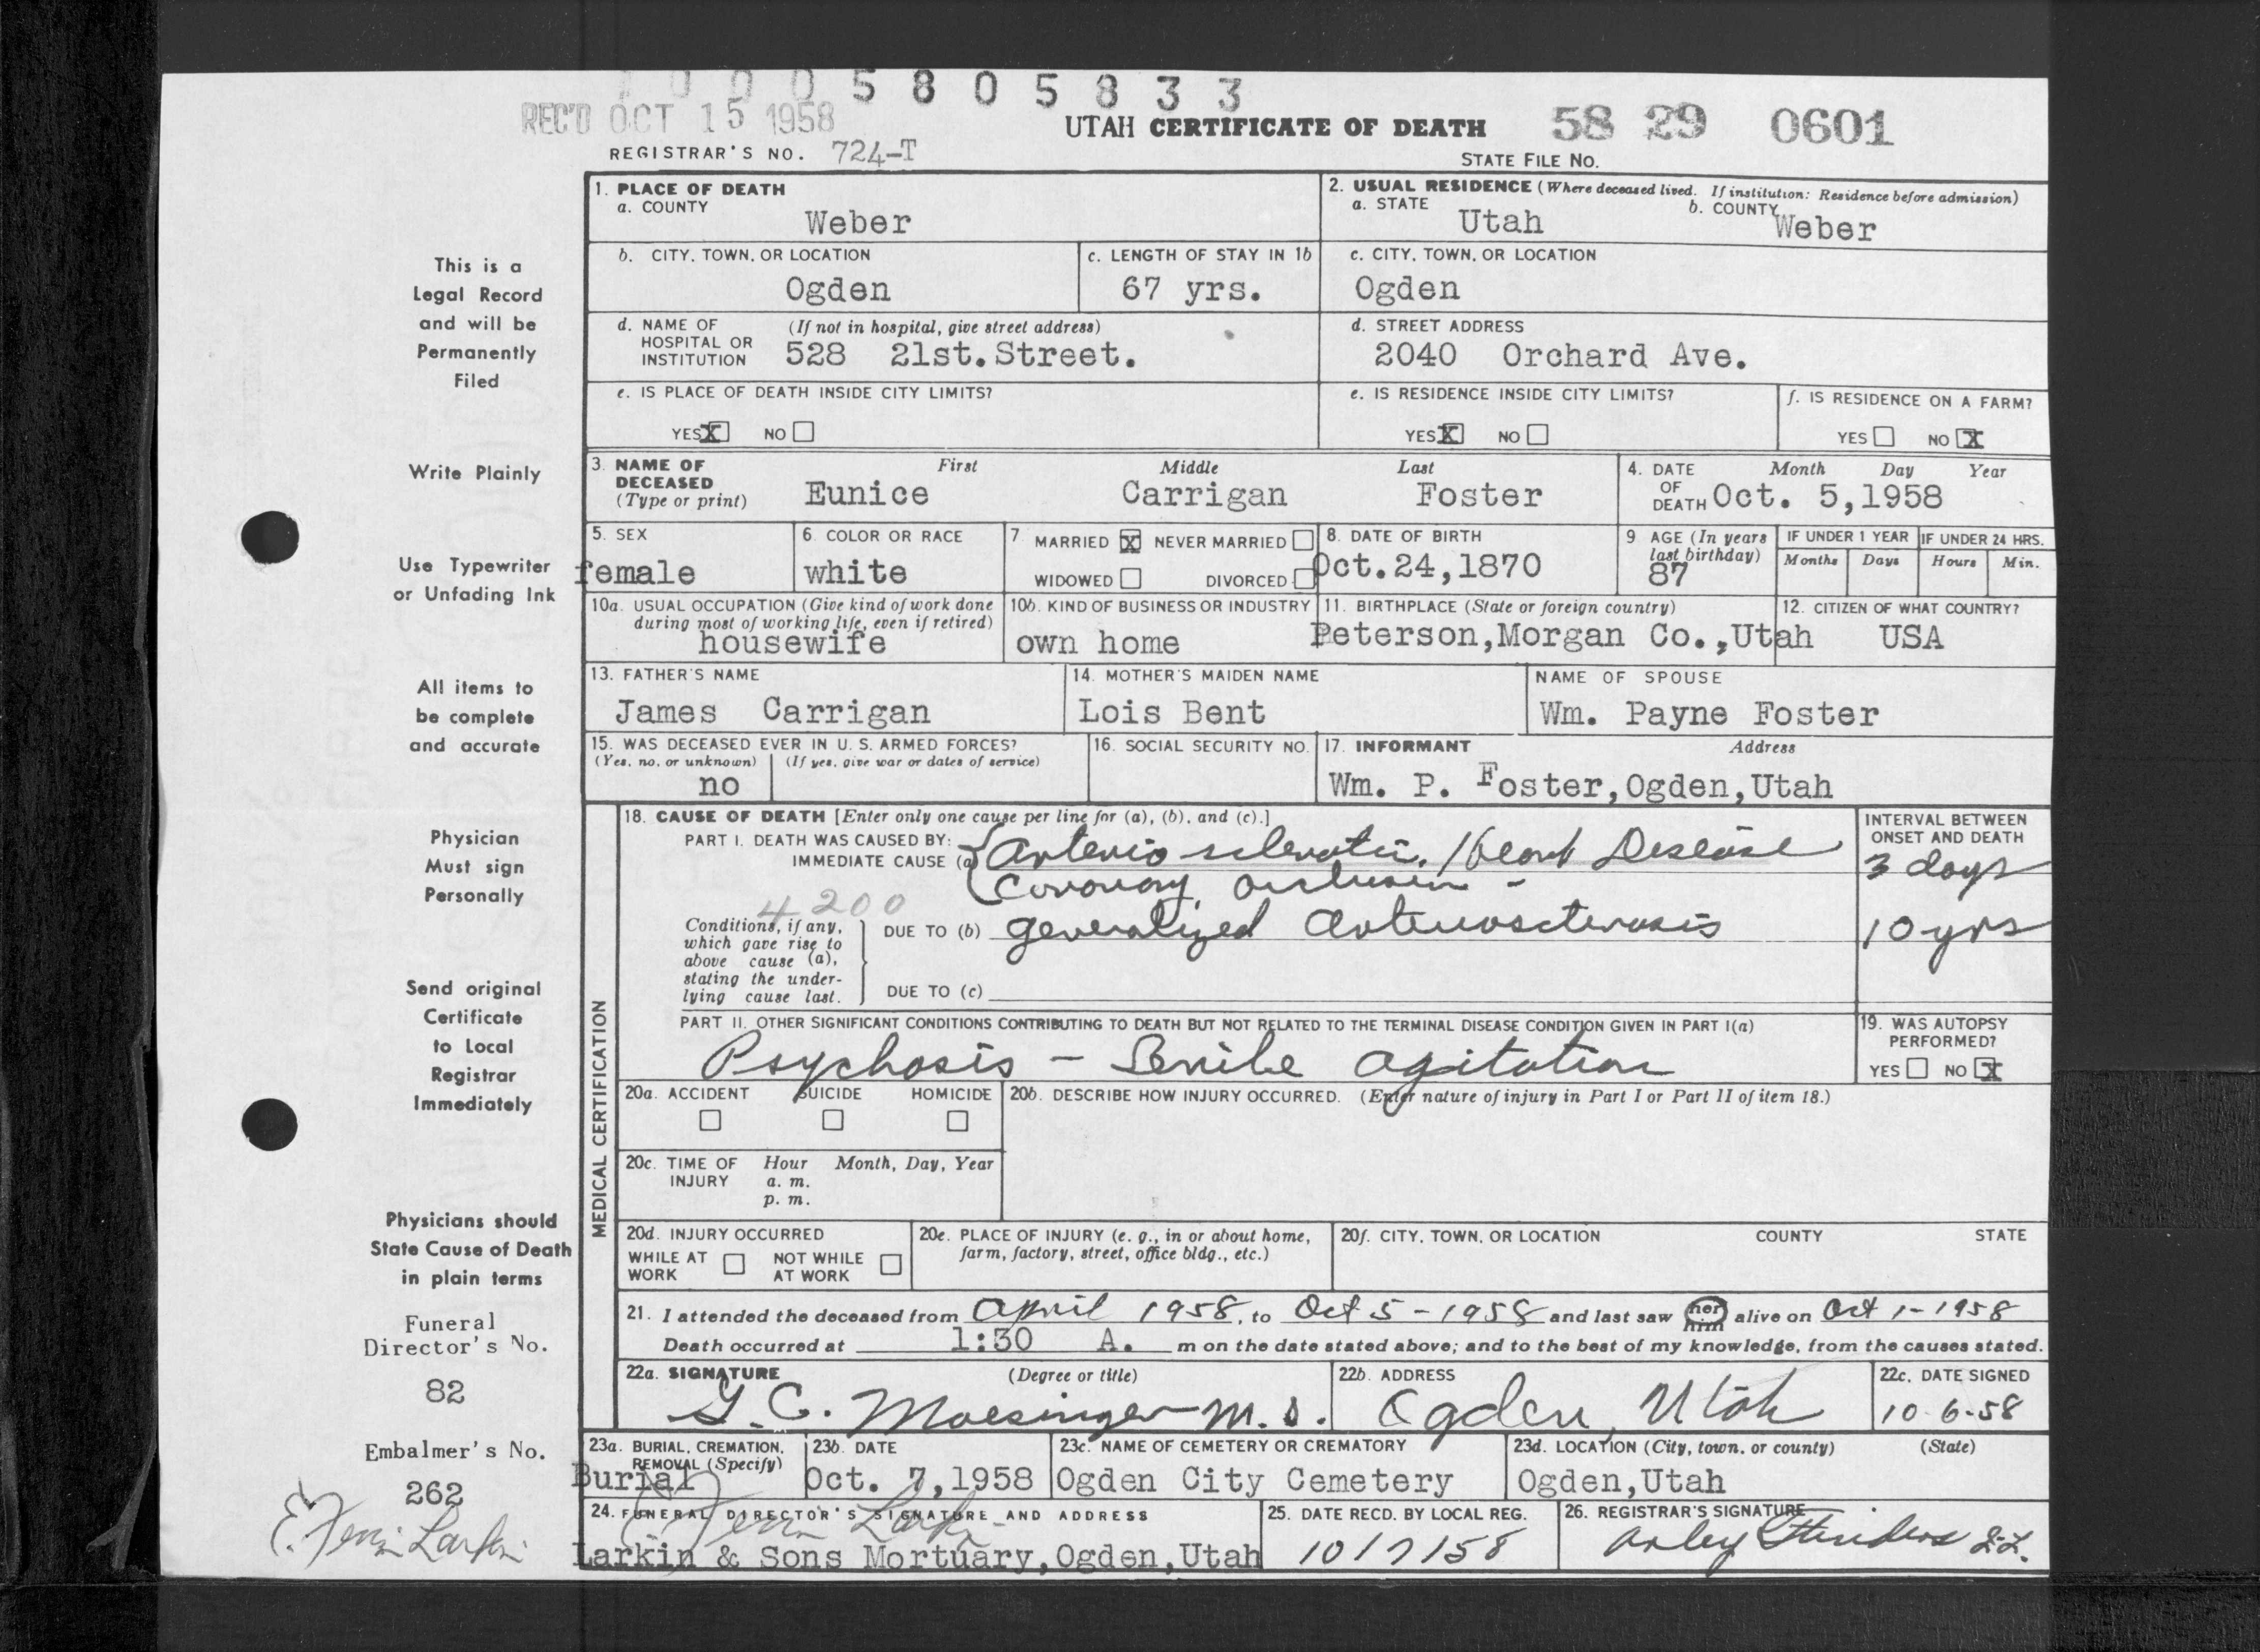 0 0 0 5 8 0 5 8 3 3
REC'D OCT 15 1958
UTAH CERTIFICATE OF DEATH 58 29 0601
REGISTRAR'S NO. 724-T
STATE FILE NO.
1. PLACE OF DEATH
a. COUNTY
Weber
2. USUAL RESIDENCE (Where deceased lived. If institution: Residence before admission)
a. STATE
Utah
b. COUNTY
Weber
b. CITY, TOWN, OR LOCATION
Ogden
c. LENGTH OF STAY IN 1b
67 yrs.
c. CITY, TOWN, OR LOCATION
Ogden
d. NAME OF HOSPITAL OR INSTITUTION
(If not in hospital, give street address)
528 21st.Street.
d. STREET ADDRESS
2040 Orchard Ave.
e. IS PLACE OF DEATH INSIDE CITY LIMITS?
YES X NO
e. IS RESIDENCE INSIDE CITY LIMITS?
YES X NO
f. IS RESIDENCE ON A FARM?
YES NO X
3. NAME OF DECEASED (Type or print)
First Middle Last
Eunice Carrigan Foster
4. DATE OF DEATH
Month Day Year
Oct. 5,1958
5. SEX
female
6. COLOR OR RACE
white
7. MARRIED X NEVER MARRIED
WIDOWED DIVORCED
8. DATE OF BIRTH
Oct.24,1870
9 AGE (In years last birthday)
87
IF UNDER 1 YEAR
Months Days
IF UNDER 24 HRS.
Hours Min.
10a. USUAL OCCUPATION (Give kind of work done during most of working life, even if retired)
housewife
10b. KIND OF BUSINESS OR INDUSTRY
own home
11. BIRTHPLACE (State or foreign country)
Peterson,Morgan Co.,Utah
12. CITIZEN OF WHAT COUNTRY?
USA
13. FATHER'S NAME
James Carrigan
14. MOTHER'S MAIDEN NAME
Lois Bent
NAME OF SPOUSE
Wm. Payne Foster
15. WAS DECEASED EVER IN U. S. ARMED FORCES?
(Yes, no, or unknown) (If yes, give war or dates of service)
no
16. SOCIAL SECURITY NO.
17. INFORMANT Address
Wm. P. Foster,Ogden,Utah
MEDICAL CERTIFICATION
18. CAUSE OF DEATH [Enter only one cause per line for (a), (b), and (c).]
INTERVAL BETWEEN ONSET AND DEATH
PART I. DEATH WAS CAUSED BY:
IMMEDIATE CAUSE (a) Arterio sclerotic Heart Disease
3 days
Coronary occlusion -
4200
Conditions, if any, which gave rise to above cause (a), stating the underlying cause last.
DUE TO (b) generalized Arteriosclerosis
10 yrs
DUE TO (c)
PART II. OTHER SIGNIFICANT CONDITIONS CONTRIBUTING TO DEATH BUT NOT RELATED TO THE TERMINAL DISEASE CONDITION GIVEN IN PART I(a)
Psychosis - Senile agitation
19. WAS AUTOPSY PERFORMED?
YES NO X
20a. ACCIDENT SUICIDE HOMICIDE
20b. DESCRIBE HOW INJURY OCCURRED. (Enter nature of injury in Part I or Part II of item 18.)
20c. TIME OF INJURY
Hour Month, Day, Year
a. m.
p. m.
20d. INJURY OCCURRED
WHILE AT WORK NOT WHILE AT WORK
20e. PLACE OF INJURY (e. g., in or about home, farm, factory, street, office bldg., etc.)
20f. CITY, TOWN, OR LOCATION COUNTY STATE
21. I attended the deceased from April 1958, to Oct 5-1958 and last saw her him alive on Oct 1-1958
Death occurred at 1:30 A. m on the date stated above; and to the best of my knowledge, from the causes stated.
22a. SIGNATURE (Degree or title)
G.C. Moesinger M.D.
22b. ADDRESS
Ogden, Utah
22c. DATE SIGNED
10-6-58
23a. BURIAL, CREMATION, REMOVAL (Specify)
Burial
23b. DATE
Oct. 7,1958
23c. NAME OF CEMETERY OR CREMATORY
Ogden City Cemetery
23d. LOCATION (City, town, or county) (State)
Ogden,Utah
24. FUNERAL DIRECTOR'S SIGNATURE AND ADDRESS
Larkin & Sons Mortuary,Ogden,Utah
25. DATE RECD. BY LOCAL REG.
10/7/58
26. REGISTRAR'S SIGNATURE
This is a
Legal Record
and will be
Permanently
Filed
Write Plainly
Use Typewriter
or Unfading Ink
All items to
be complete
and accurate
Physician
Must sign
Personally
Send original
Certificate
to Local
Registrar
Immediately
Physicians should
State Cause of Death
in plain terms
Funeral
Director's No.
82
Embalmer's No.
262
E. Ferrin Larkin